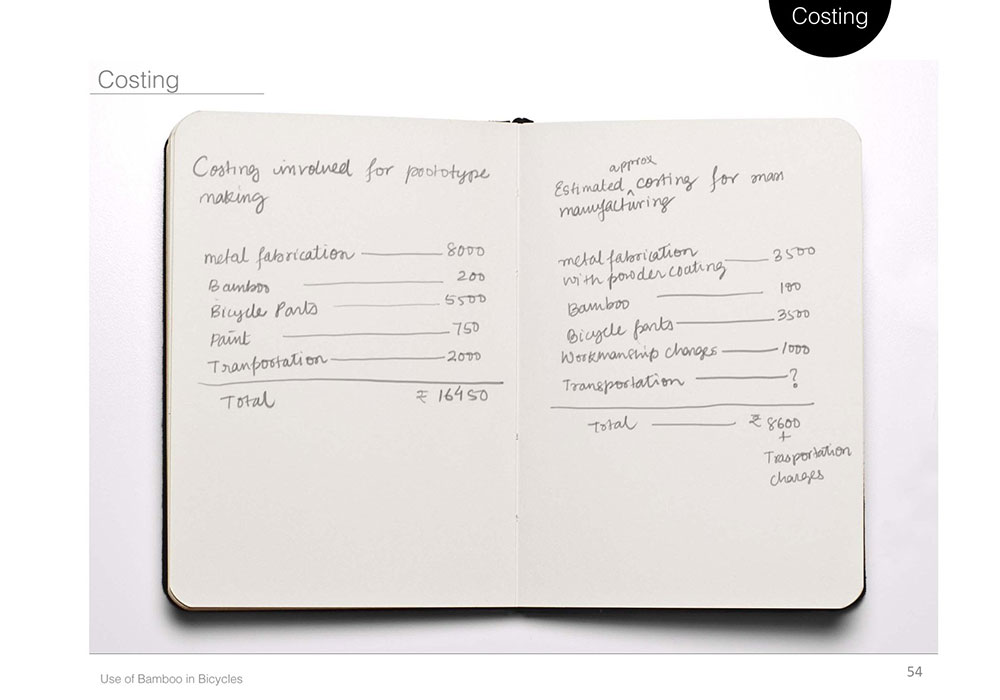 Costing
Costing
Costing involved for pootot​ype
making
metal fabrication 8000
Bamboo 200
Bicycle Parts 5500
Paint 750
Tranportation 2000
Total ₹ 16450
approx
Estimated ^ costing for mass
manufacturing
metal fabrication
with powder coating 3500
Bamboo 100
Bicycle parts 3500
Workmanship charges 1000
Transportation ?
Total ₹ 8600
+
Trasportation
charges
Use of Bamboo in Bicycles
54